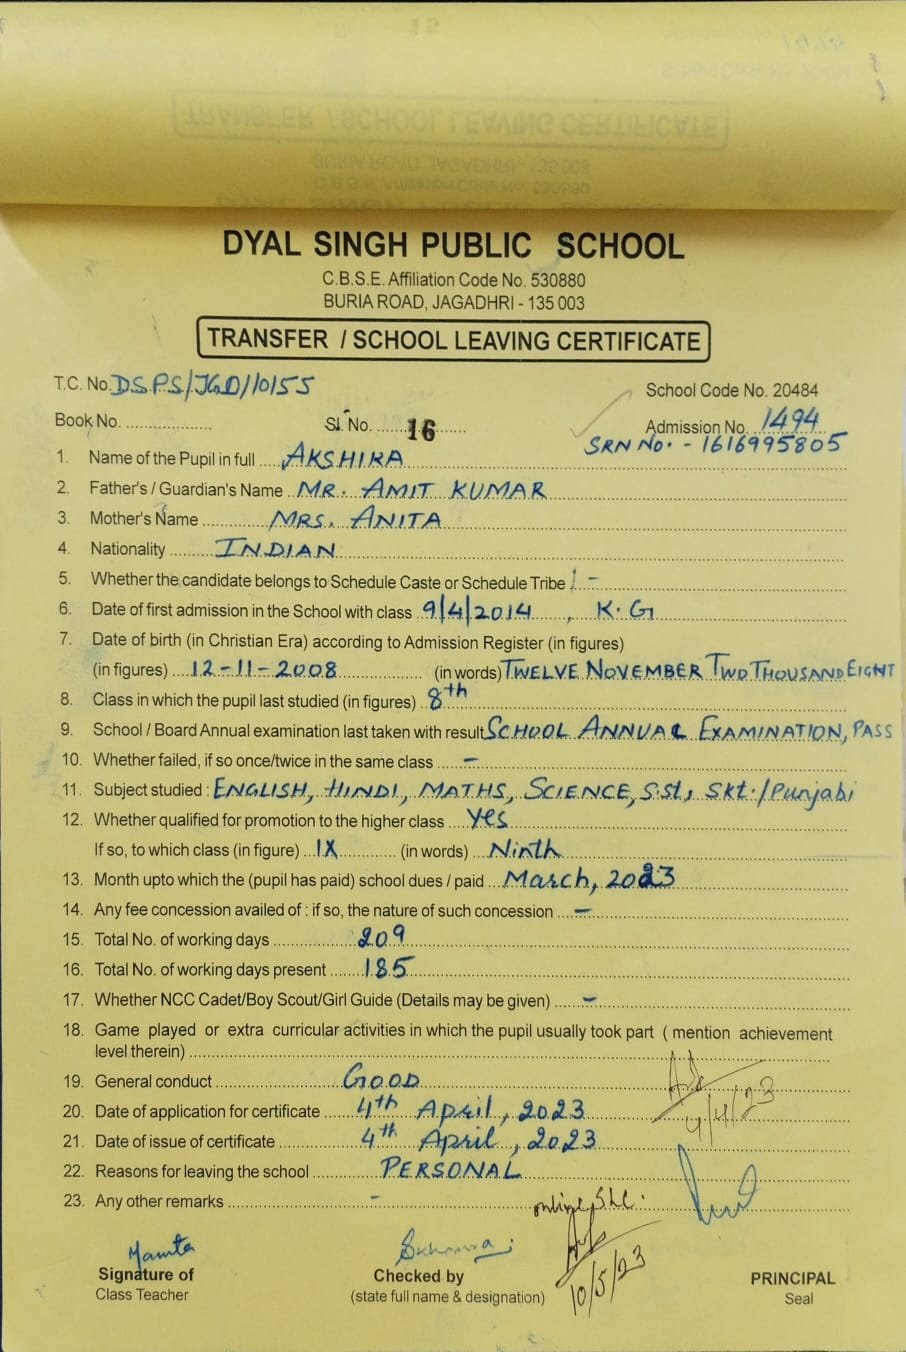 DYAL SINGH PUBLIC SCHOOL
C.B.S.E. Affiliation Code No. 530880
BURIA ROAD, JAGADHRI - 135 003
TRANSFER / SCHOOL LEAVING CERTIFICATE
T.C. No. D.S.P.S/JGD/10155
School Code No. 20484
Book No. .................... Sl. No. ....... 16 ....... Admission No. 1494
SRN No. - 1616995805
1. Name of the Pupil in full ..... AKSHIRA
2. Father's / Guardian's Name .. MR. AMIT KUMAR
3. Mother's Name ............ MRS. ANITA
4. Nationality ......... INDIAN
5. Whether the candidate belongs to Schedule Caste or Schedule Tribe : -
6. Date of first admission in the School with class 9/4/2014 , K.G
7. Date of birth (in Christian Era) according to Admission Register (in figures)
(in figures) .... 12-11-2008 .................... (in words) TWELVE NOVEMBER TWO THOUSAND EIGHT
8. Class in which the pupil last studied (in figures) 8th
9. School / Board Annual examination last taken with result SCHOOL ANNUAL EXAMINATION, PASS
10. Whether failed, if so once/twice in the same class ..... -
11. Subject studied : ENGLISH, HINDI, MATHS, SCIENCE, S.St, Skt./Punjabi
12. Whether qualified for promotion to the higher class .... Yes
If so, to which class (in figure) ... IX ............. (in words) ... Ninth
13. Month upto which the (pupil has paid) school dues / paid ... March, 2023
14. Any fee concession availed of : if so, the nature of such concession .... -
15. Total No. of working days .................. 209
16. Total No. of working days present ....... 185
17. Whether NCC Cadet/Boy Scout/Girl Guide (Details may be given) ..... -
18. Game played or extra curricular activities in which the pupil usually took part ( mention achievement
level therein) ....................
19. General conduct .......................... GOOD
20. Date of application for certificate ...... 4th April, 2023
4/4/23
21. Date of issue of certificate .............. 4th April, 2023
22. Reasons for leaving the school ............ PERSONAL
23. Any other remarks .................... -
online SLC.
Mamta
Signature of
Class Teacher
Checked by
(state full name & designation)
10/5/23
PRINCIPAL
Seal